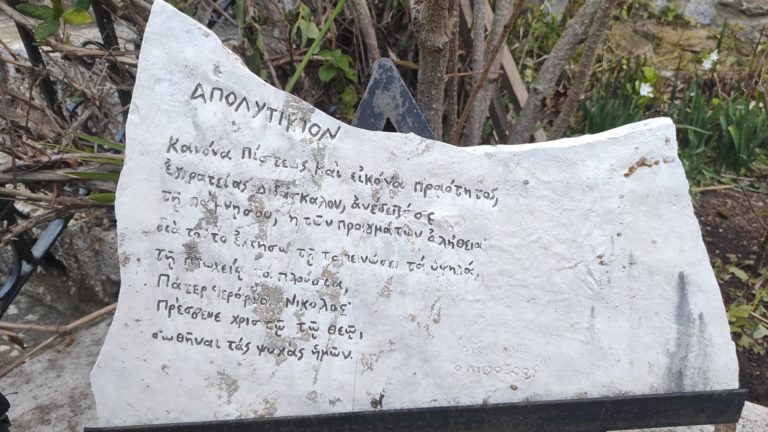 ΑΠΟΛΥΤΙΚΙΟΝ
Κανόνα Πίστεως καὶ εἰκόνα πραότητος,
ἐγκρατείας Διδάσκαλον, ἀνέδειξέ σε
τῇ ποίμνῃ σου, ἡ τῶν πραγμάτων ἀλήθεια
διὰ τοῦτο ἐκτήσω τῇ ταπεινώσει τά ὑψηλά,
τῇ πτωχείᾳ τὰ πλούσια,
Πάτερ Ἱεράρχα Νικόλαε
Πρέσβευε χριστῷ τῷ θεῷ,
σωθῆναι τάς ψυχάς ἡμῶν.
Ο ΛΙΘΟΞΟΟΣ